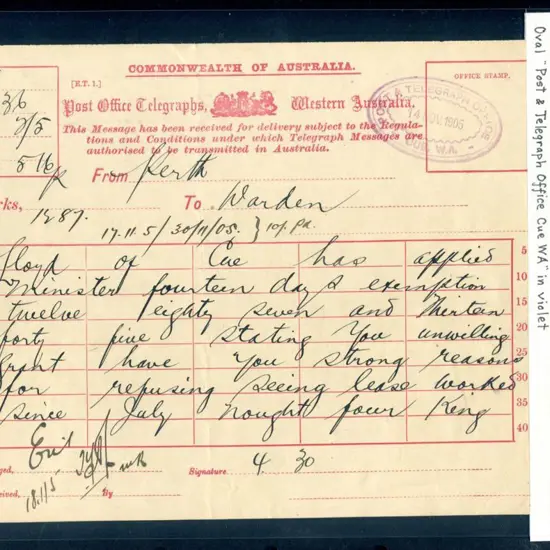 COMMONWEALTH OF AUSTRALIA.
[R.T. 1.]
OFFICE STAMP.
36
Post Office Telegraphs, Western Australia.
POST & TELEGRAPH OFFICE
CUE, W.A.
This Message has been received for delivery subject to the Regula-
tions and Conditions under which Telegraph Messages are
authorised to be transmitted in Australia.
5 16 p
From Perth
1287. To Warden
17.11.5 / 30/11/05. } 10/- pd.
floyd of Cue has applied 5
Minister fourteen days exemption
twelve eighty seven and thirteen 15
forty five stating you unwilling 20
grant have you strong reasons 25
for refusing seeing lease worked 30
since July nought four King 35
40
18.11.5
Signature 4 30
By
Oval "Post & Telegraph Office Cue WA" in violet